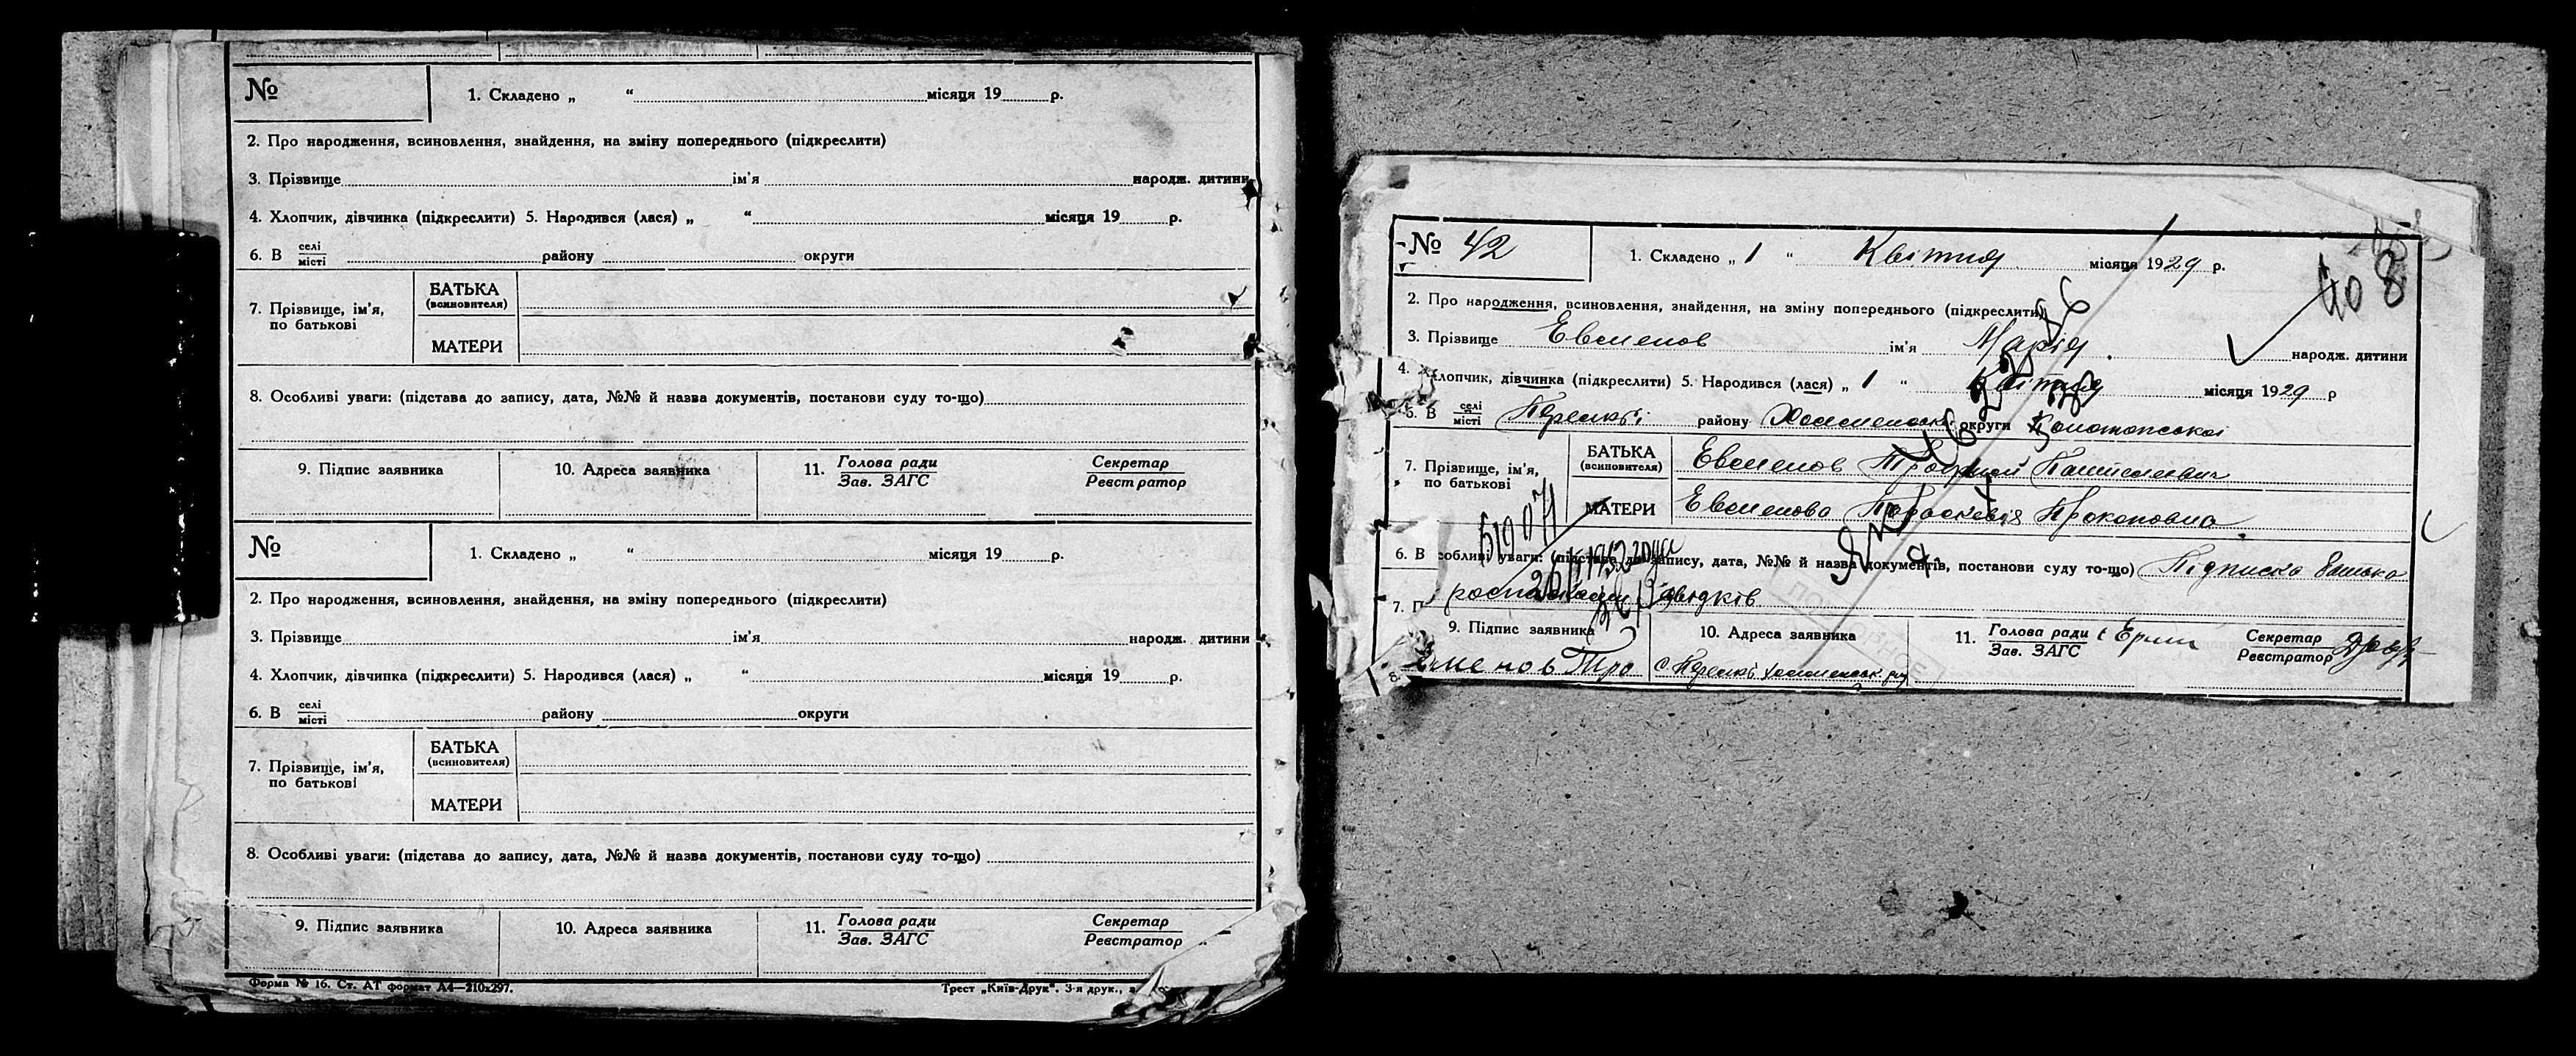 №
1. Складено „ “ місяця 19 р.
2. Про народження, всиновлення, знайдення, на зміну попереднього (підкреслити)
3. Прізвище ім'я народж. дитини
4. Хлопчик, дівчинка (підкреслити) 5. Народився (лася) „ “ місяця 19 р.
6. В селі району округи
місті
7. Прізвище, ім'я, по батькові
БАТЬКА
(всиновителя)
МАТЕРИ
8. Особливі уваги: (підстава до запису, дата, №№ й назва документів, постанови суду то-що)
9. Підпис заявника 10. Адреса заявника 11. Голова ради Секретар
Зав. ЗАГС Реєстратор
№
1. Складено „ “ місяця 19 р.
2. Про народження, всиновлення, знайдення, на зміну попереднього (підкреслити)
3. Прізвище ім'я народж. дитини
4. Хлопчик, дівчинка (підкреслити) 5. Народився (лася) „ “ місяця 19 р.
6. В селі району округи
місті
7. Прізвище, ім'я, по батькові
БАТЬКА
(всиновителя)
МАТЕРИ
8. Особливі уваги: (підстава до запису, дата, №№ й назва документів, постанови суду то-що)
9. Підпис заявника 10. Адреса заявника 11. Голова ради Секретар
Зав. ЗАГС Реєстратор
Форма № 16. Ст. АТ формат А4—210х297. Трест „Київ-Друк". 3-я друк.,
№ 42 1. Складено „ 1 “ Квітня місяця 1929 р.
2. Про народження, всиновлення, знайдення, на зміну попереднього (підкреслити)
3. Прізвище Евсменов ім'я Марія народж. дитини
4. Хлопчик, дівчинка (підкреслити) 5. Народився (лася) „ 1 “ Квітня місяця 1929 р
В селі району округи Конотопської
місті
7. Прізвище, ім'я, по батькові
БАТЬКА
(всиновителя)
Евсменов
МАТЕРИ
Евсменова Параскевія Прокоповна
6. В особливі уваги: (підстава до запису, дата, №№ й назва документів, постанови суду то-що) Підписка батька
7. П свідків
9. Підпис заявника 10. Адреса заявника 11. Голова ради Секретар
Зав. ЗАГС Реєстратор
менов Тро
8.